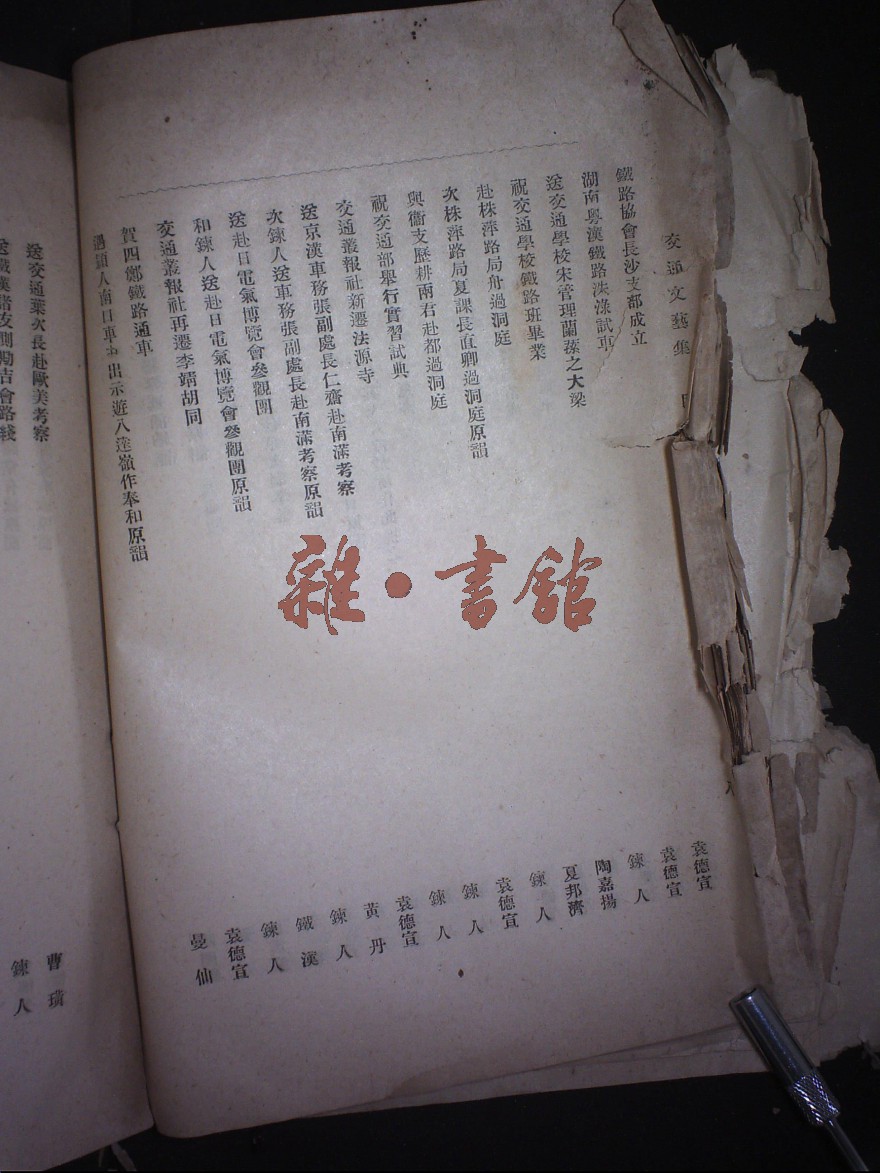 交通文藝集
鐵路協會長沙支都成立 袁德宣
湖南粵漢鐵路洙淥試車 袁德宣
送交通學校宋管理蘭蓀之大梁 鍊人
祝交通學校鐵路班畢業 陶嘉揚
赴株萍路局舟過洞庭 夏邦濟
次株萍路局夏課長直卿過洞庭原韻 鍊人
與衞支歷耕兩君赴都過洞庭 袁德宣
祝交通部舉行實習試典 鍊人
交通叢報社新遷法源寺 鍊人
送京漢車務張副處長仁齋赴南滿考察 袁德宣
次鍊人送車務張副處長赴南滿考察原韻 黃丹
送赴日電氣博覽會參觀團 鍊人
和鍊人送赴日電氣博覽會參觀團原韻 鐵溪
交通叢報社再遷李靖胡同 鍊人
賀四鄭鐵路通車 袁德宣
遇穎人南口車中出示遊八達嶺作奉和原韻 曼仙
送交通葉次長赴歐美考察 曹璜
送鐵漢諸友測勘吉會路綫 鍊人
雜·書館